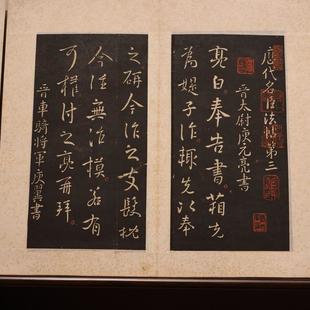 歷代名臣法帖第三
晉太尉庾元亮書
亮白奉告書箱先
為媞子作輒先以奉
之研今作之支髮枕
今往無治模若有
可權付之亮再拜
晉車騎將軍庾翼書